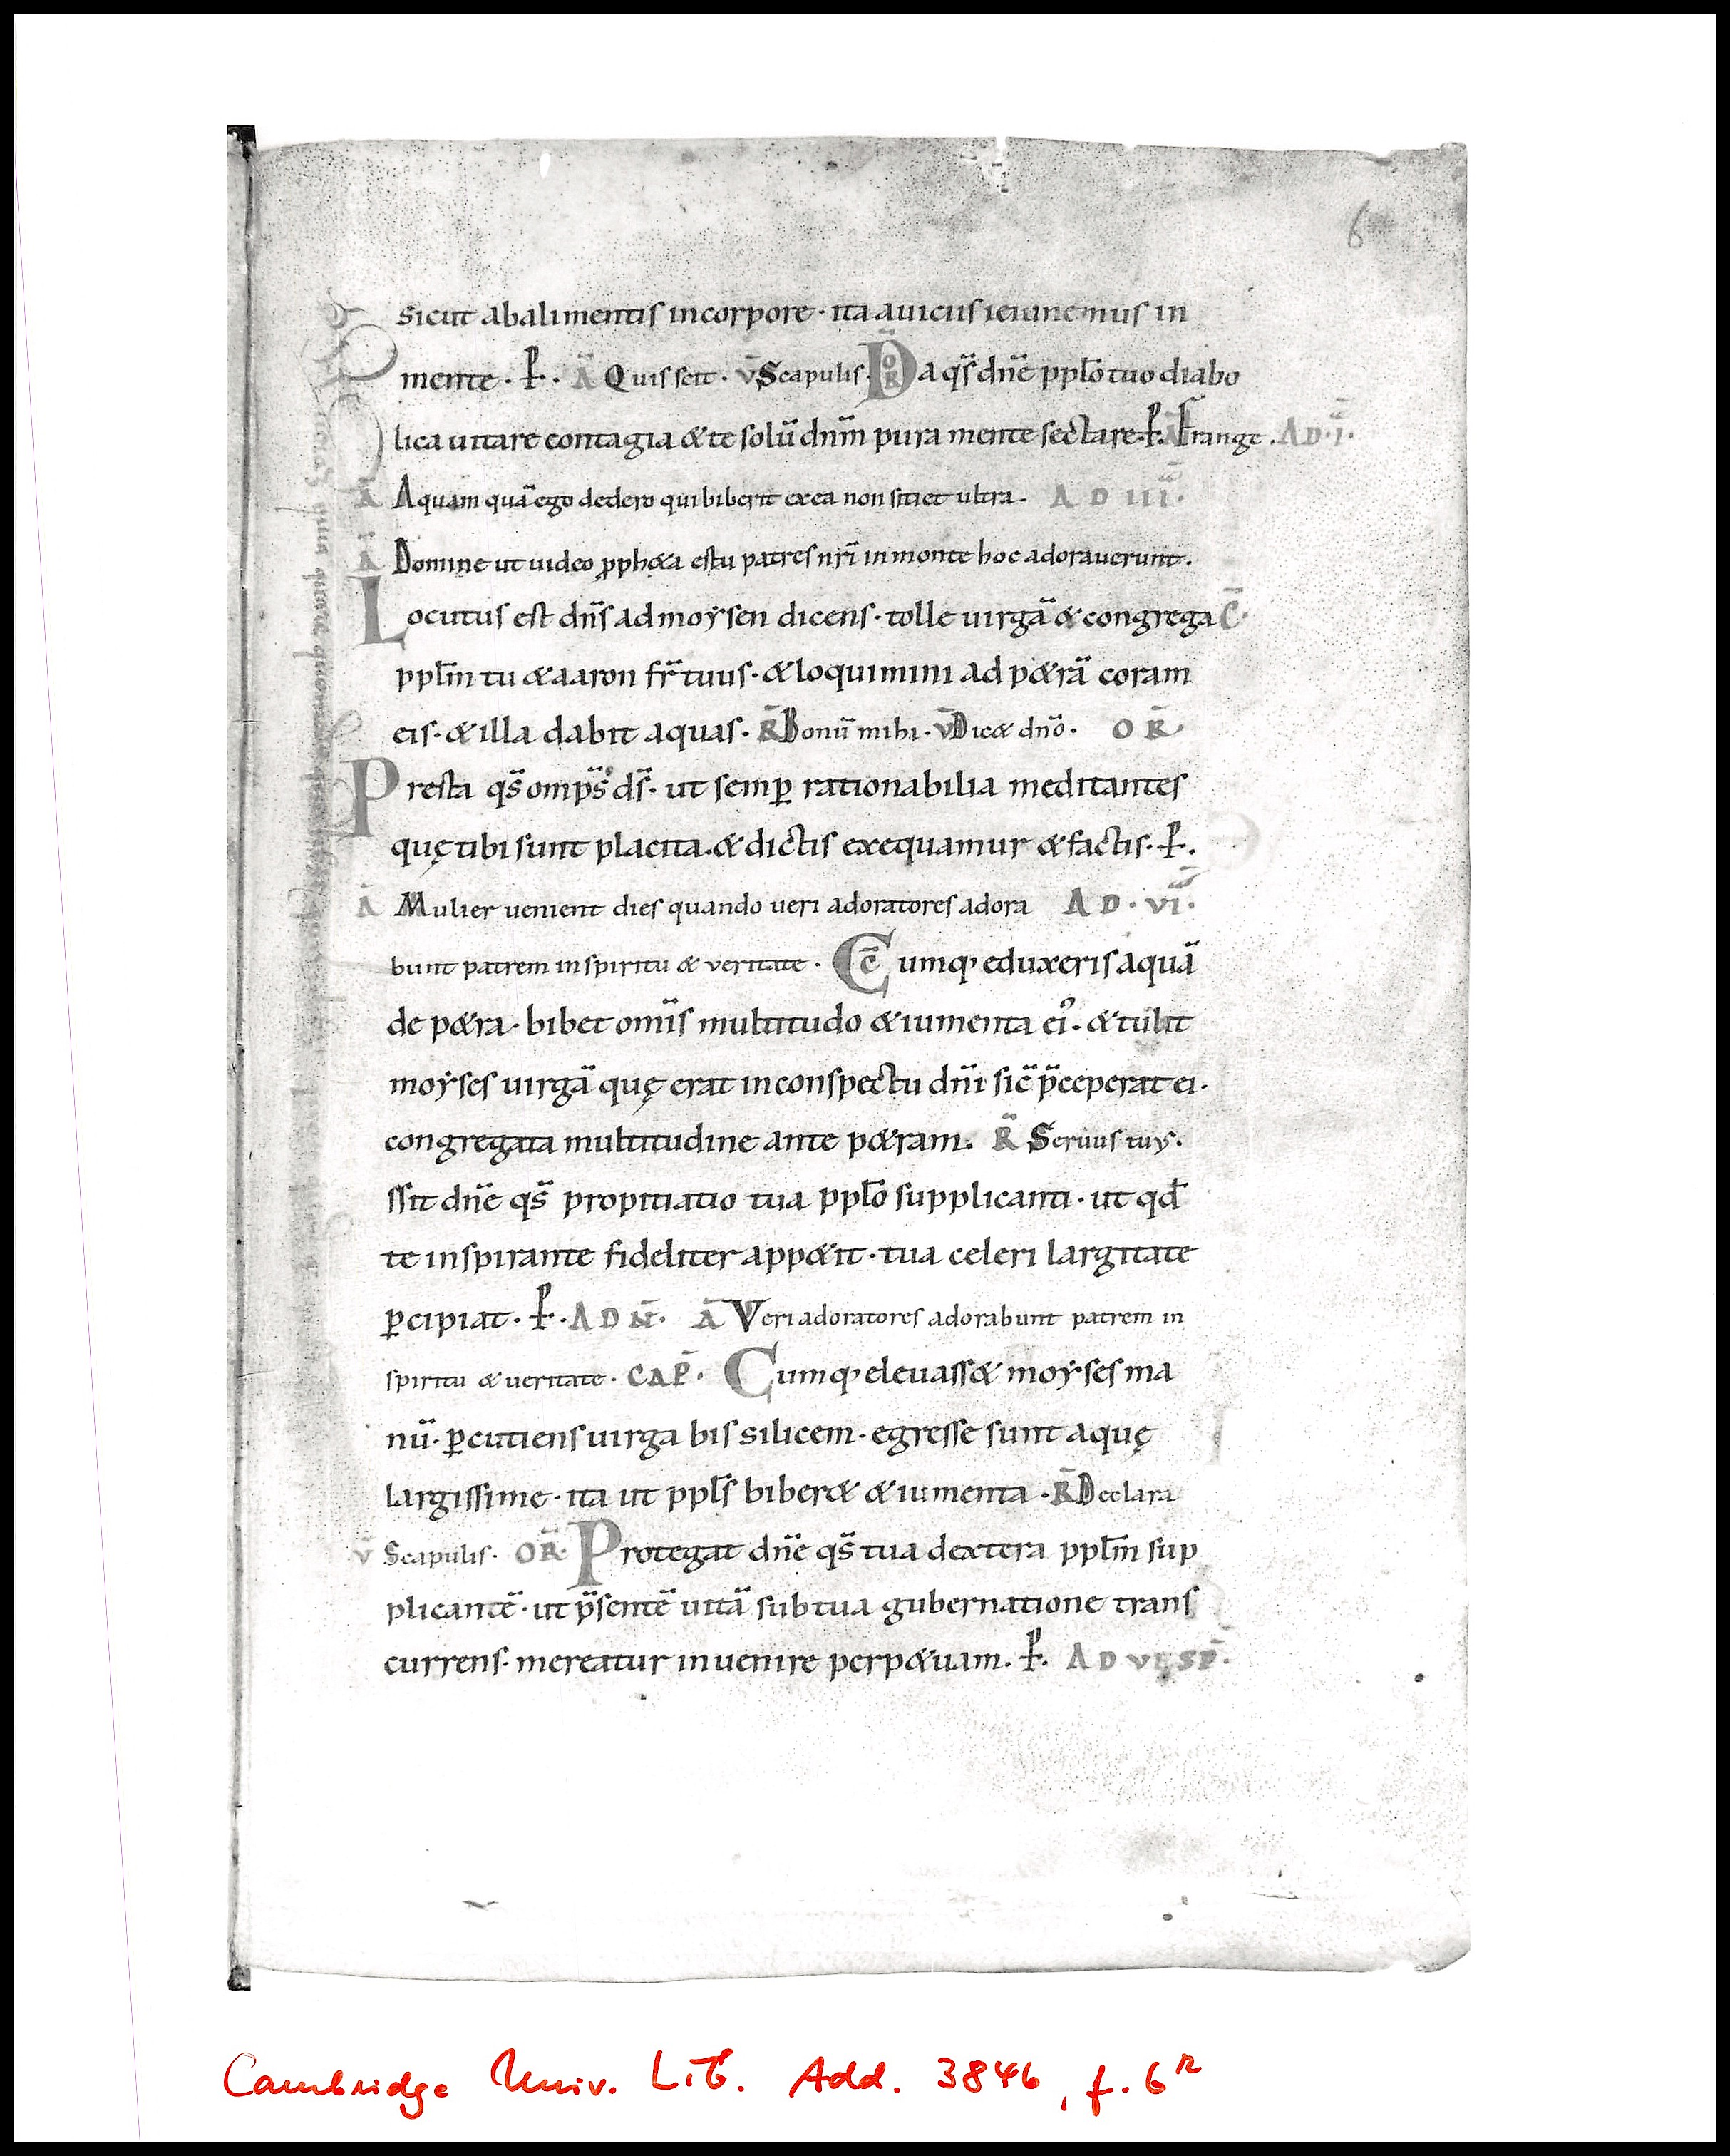 6
sicut abalimentis incorpore · ita auiciis ieiunemus in
mente · ꝑ · A̅ Quis scit · v̅ Scapulis · OR̅ Da qs̅ dn̅e ppl̅o tuo diabo
lica uitare contagia & te solu̅ dnm̅ pura mente sectare · ꝑ · A̅ Frange . AD · I̅ ·
A̅ Aquam qua̅ ego dedero qui biberit exea non sitiet ultra . AD III̅ ·
A̅ Domine ut uideo ꝓph&a estu patres nr̅i inmonte hoc adorauerunt .
Locutus est dn̅s ad moẏsen dicens · tolle uirga̅ & congrega C̅ ·
ppl̅m tu & aaron fr̅ tuus · & loquimini ad p&ra̅ coram
eis · & illa dabit aquas · R̅ Bonu̅ mihi · v̅ Dic& dn̅o · OR̅
Presta qs̅ omps̅ ds̅ · ut semꝑ rationabilia meditantes
quę tibi sunt placita . & dictis exequamur & factis · ꝑ .
A̅ Mulier uenient dies quando ueri adoratores adora AD · VI̅ ·
bunt patrem inspiritu & veritate · C̅ Cumq; eduxeris aqua̅
de p&ra · bibet omi̅s multitudo & iumenta ei᾿ · & tulit
moẏses uirga̅ quę erat inconspectu dn̅i sic̅ p̅ceperat ei ·
congregata multitudine ante p&ram · R̅ Seruus tuꝰ ·
ssit dn̅e qs̅ propitiatio tua ppl̅o supplicanti · ut qd̅
te inspirante fideliter app&it · tua celeri largitate
ꝑcipiat · ꝑ · AD N̅ · A̅ Veri adoratores adorabunt patrem in
spiritu & ueritate · CAP̅ · Cumq; eleuass& moẏses ma
nu̅ · ꝑcutiens uirga bis silicem · egresse sunt aquę
largissime · ita ut ppl̅s biber& & iumenta · R̅ Declara
v̅ Scapulis · OR̅ · Protegat dn̅e qs̅ tua dextera ppl̅m sup
plicante̅ · ut p̅sente̅ uita̅ sub tua gubernatione trans
currens · mereatur inuenire perp&uam . ꝑ · AD VESP̅ ·
Cambridge Univ. Lib. Add. 3846, f. 6ʳ